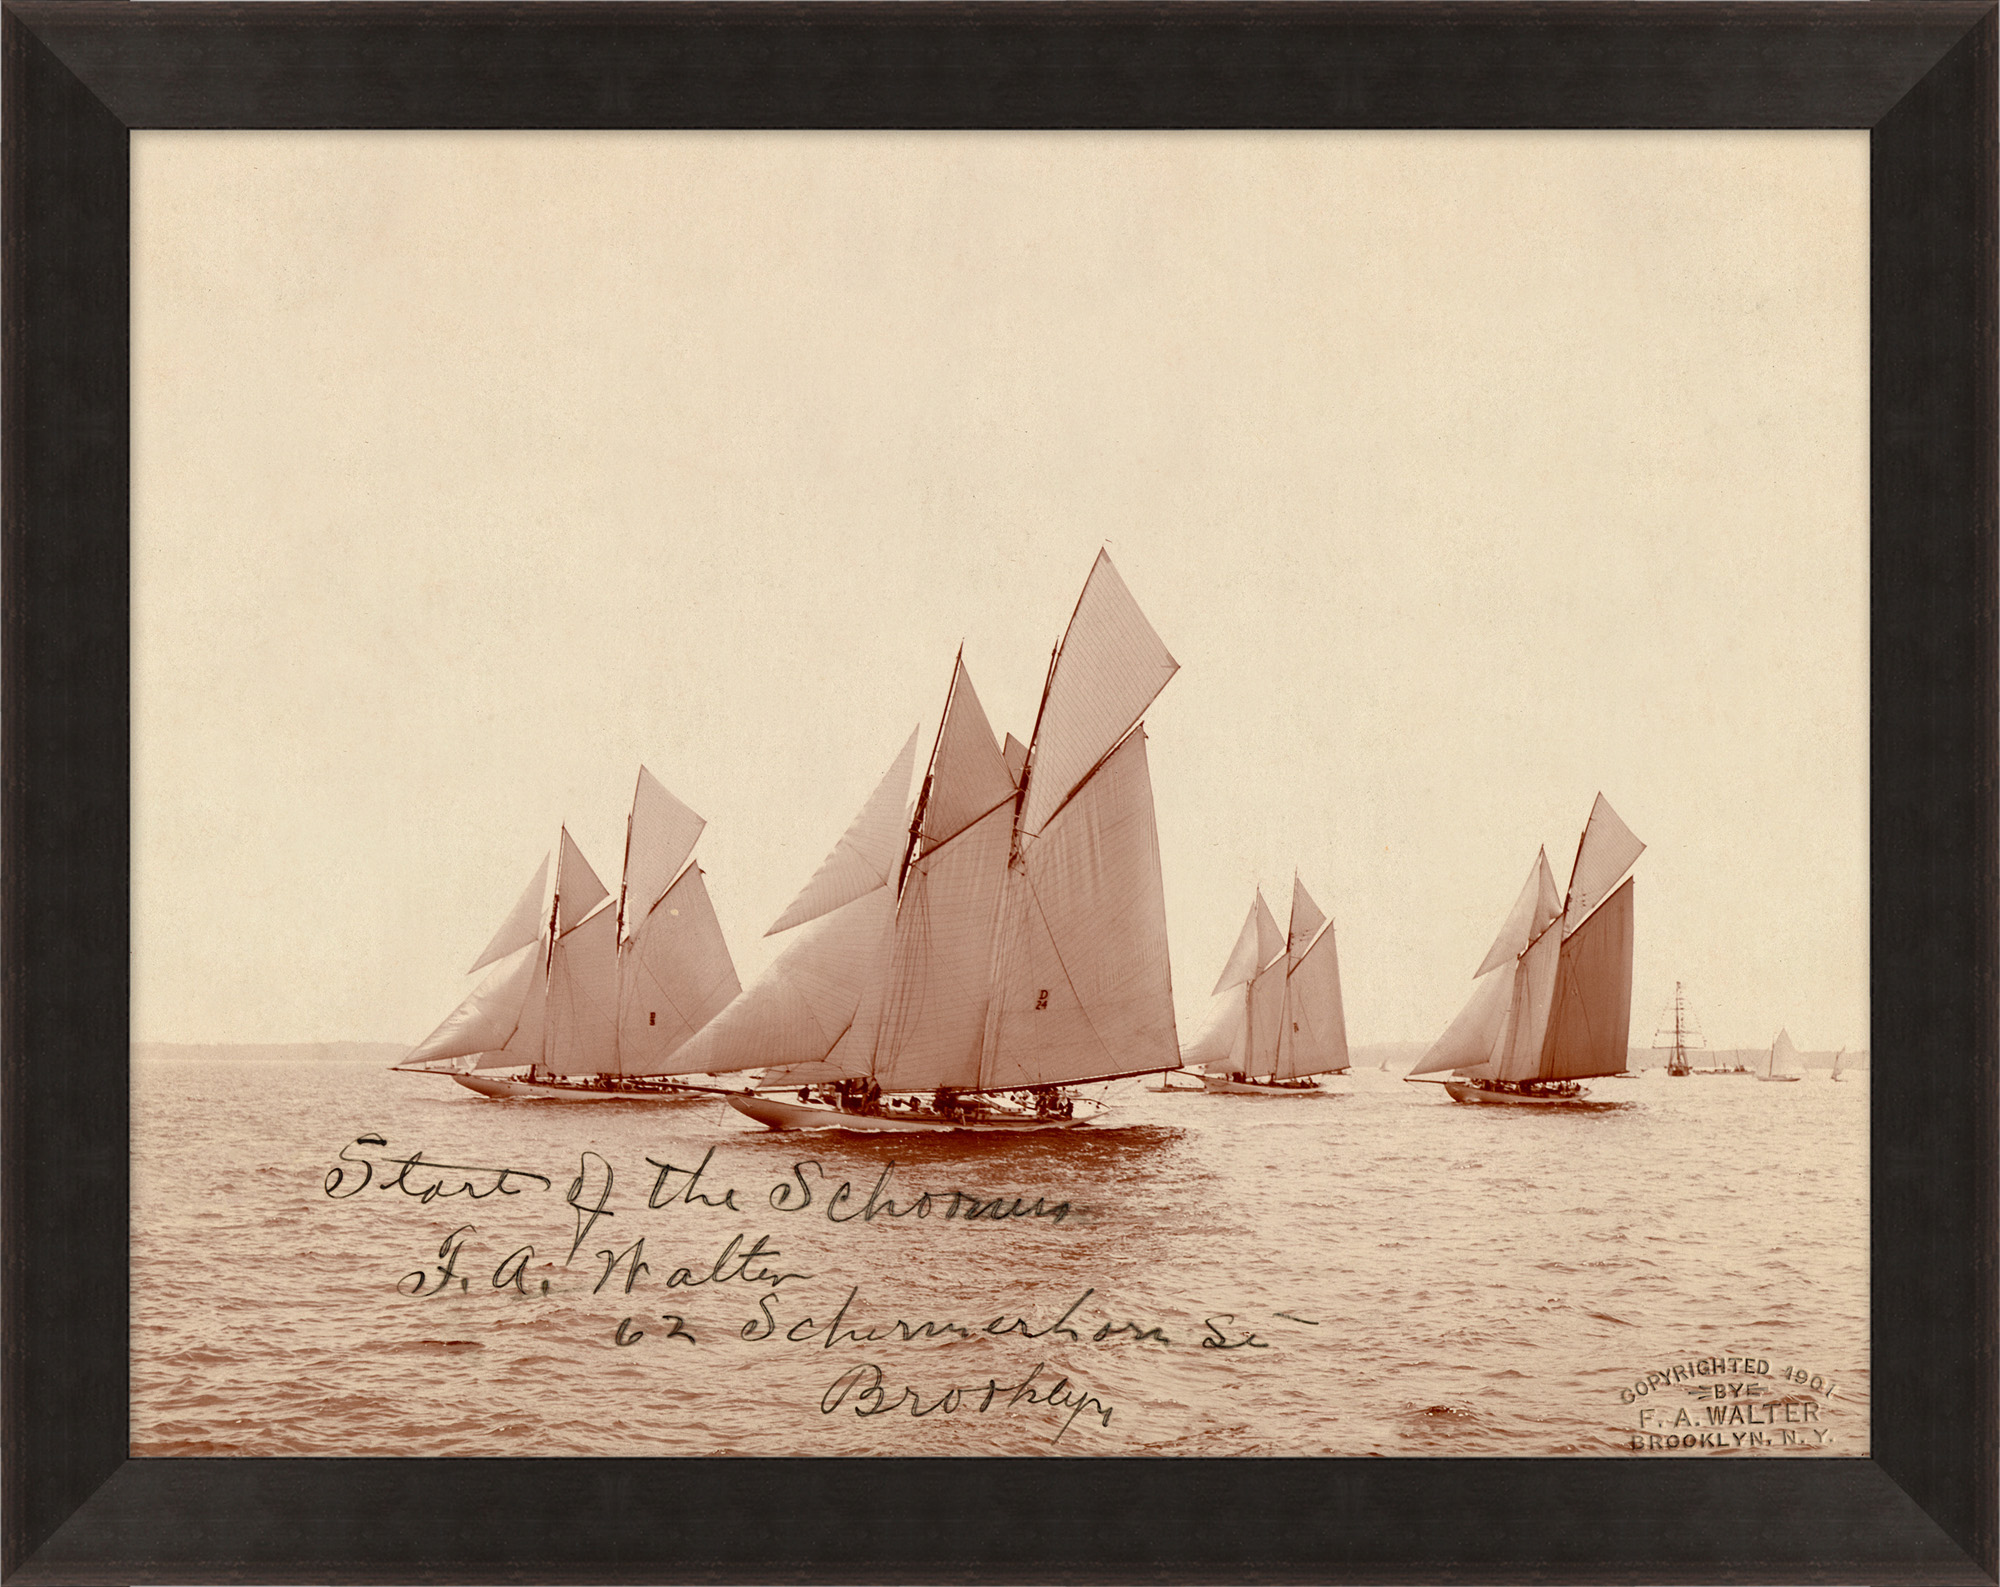 D
24
Start of the Schooners
F. A. Walter
62 Schermerhorn St
Brooklyn
COPYRIGHTED 1901
BY
F. A. WALTER
BROOKLYN, N. Y.